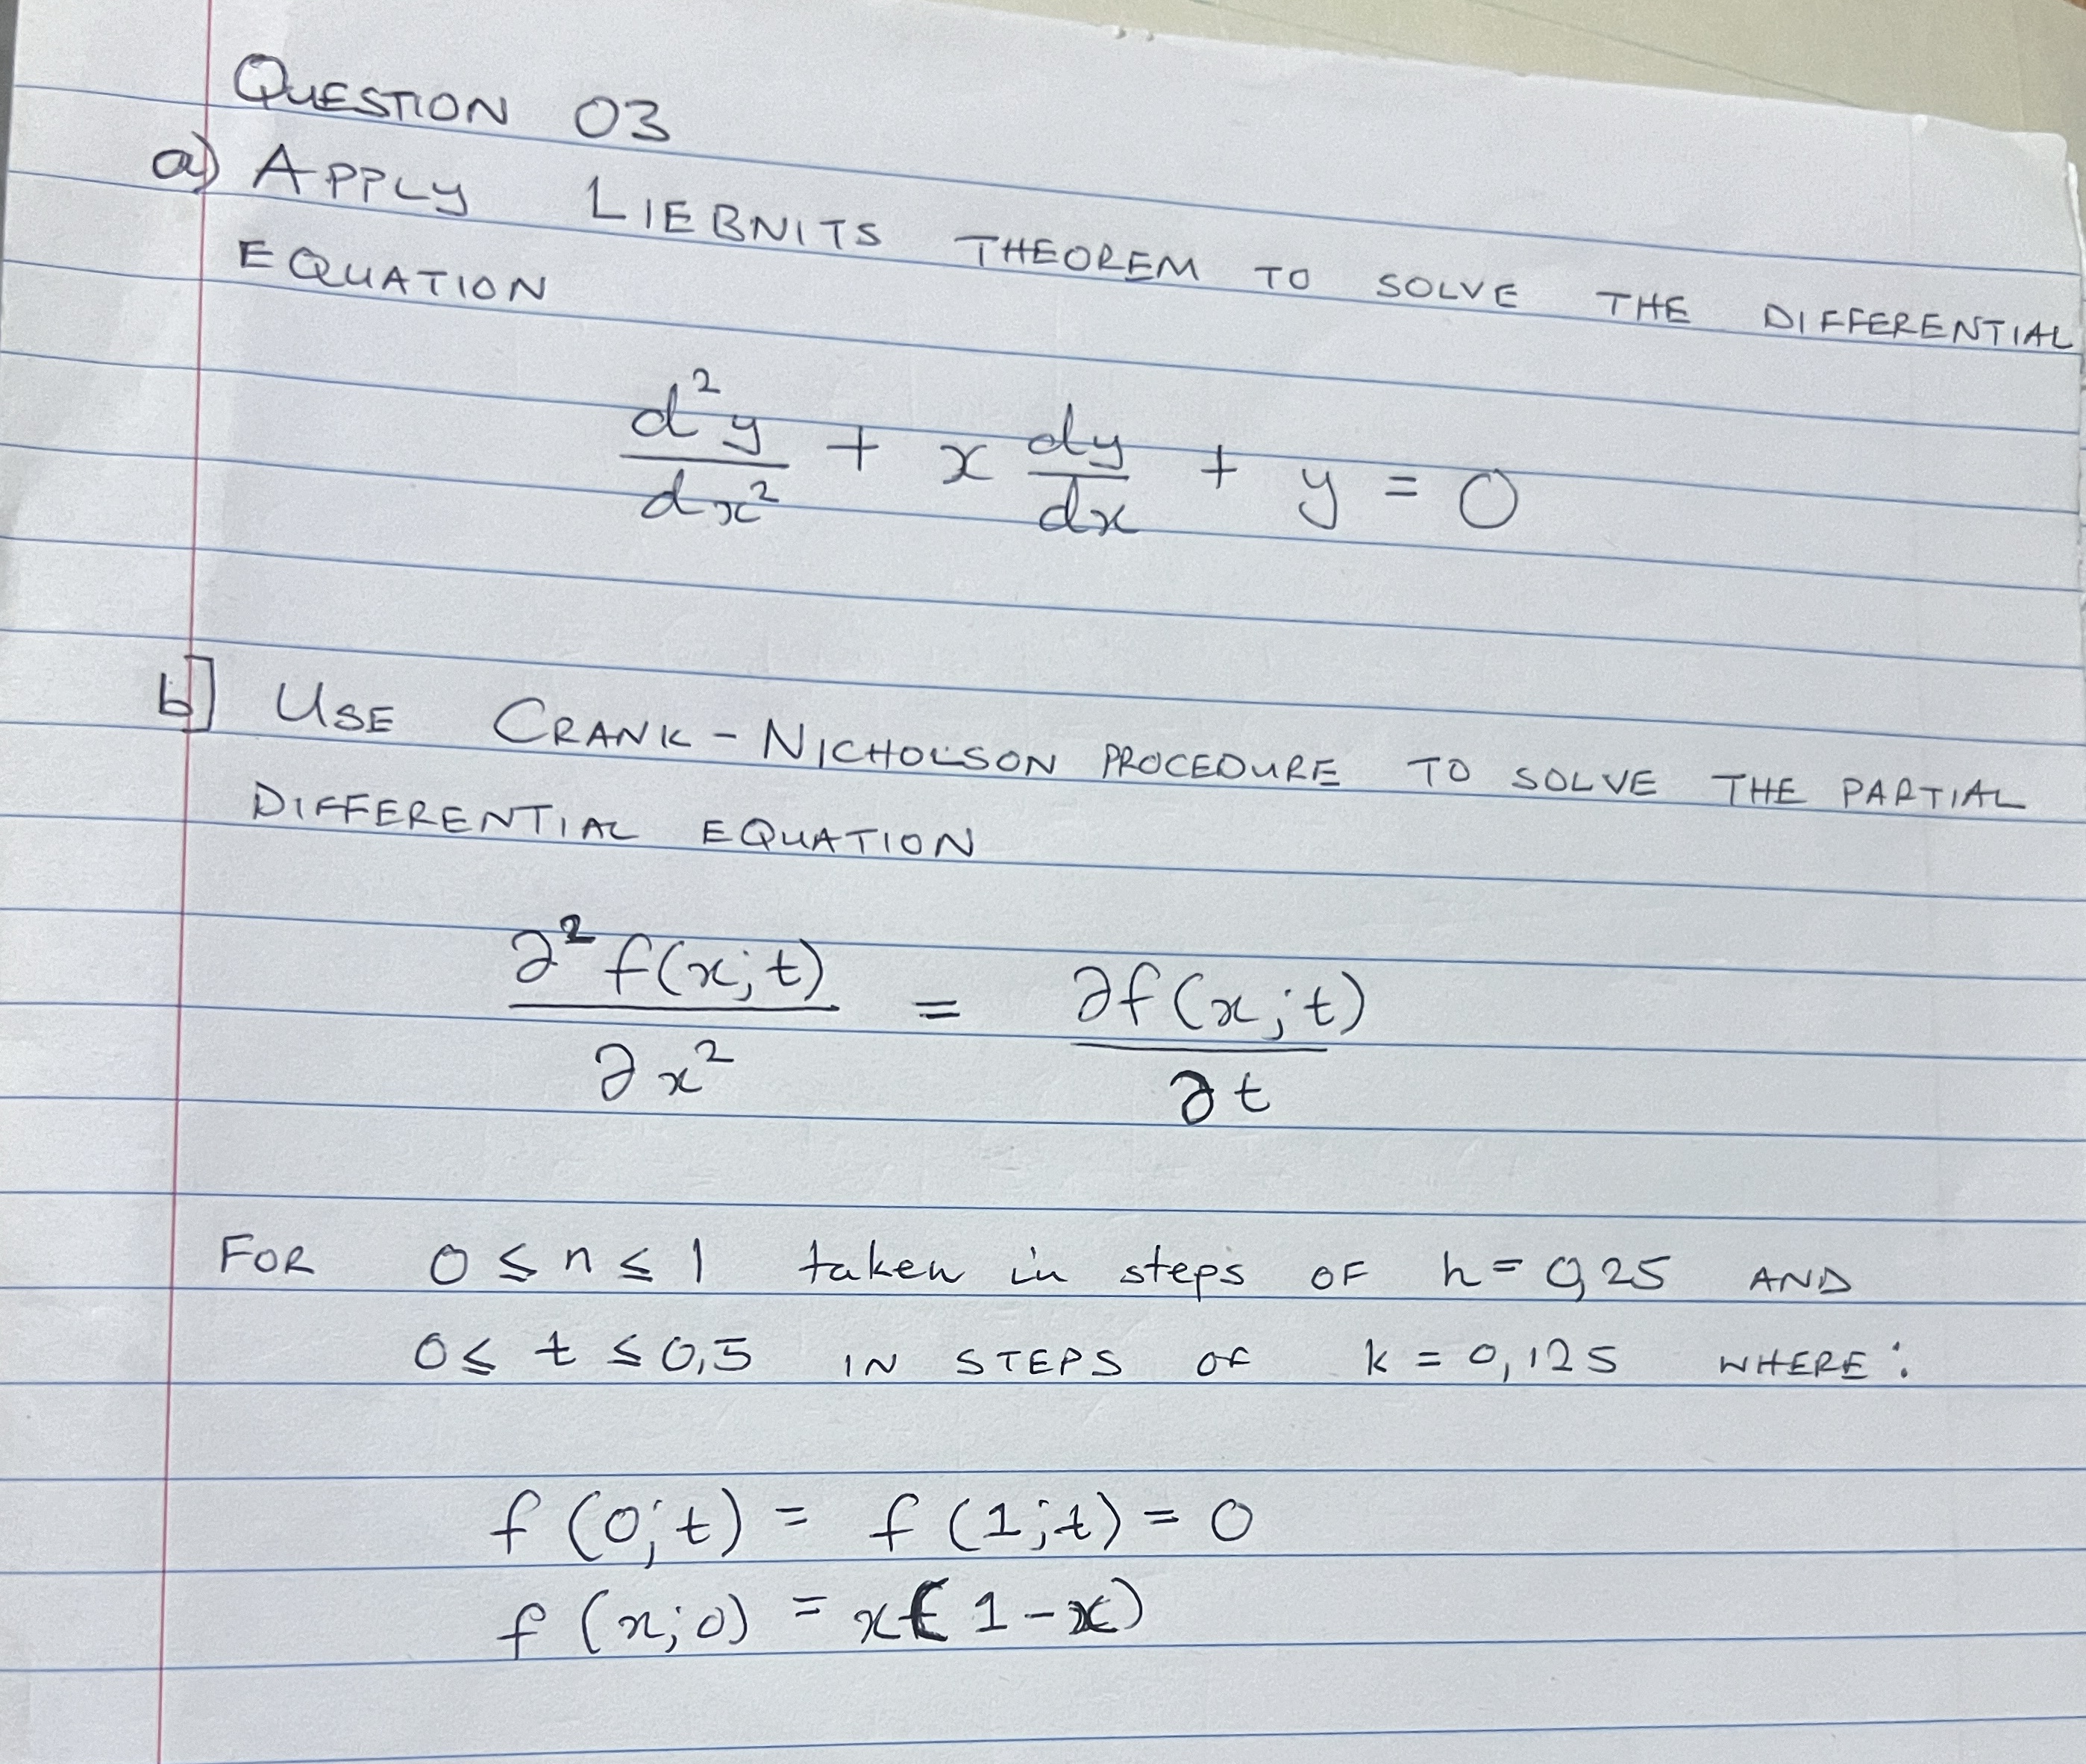 QUESTION 03
a) APPLY LIEBNITS THEOREM TO SOLVE THE DIFFERENTIAL
EQUATION
d²y/dx² + x dy/dx + y = 0
b] USE CRANK-NICHOLSON PROCEDURE TO SOLVE THE PARTIAL
DIFFERENTIAL EQUATION
∂²f(x;t)/∂x² = ∂f(x;t)/∂t
FOR 0 ≤ n ≤ 1 taken in steps OF h = 0,25 AND
0 ≤ t ≤ 0,5 IN STEPS OF k = 0,125 WHERE:
f(0;t) = f(1;t) = 0
f(x;0) = x(1-x)